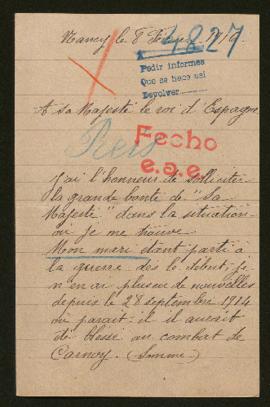 Nancy le 8
4827
Pedir informes
Que se hace asi
Devolver
A sa Majesté le roi d'Espagne
Fecho
J'ai l'honneur de solliciter
la grande bonté de "Sa
Majesté" dans la situation
où je me trouve
Mon mari étant parti à
la guerre dès le debut je
n'en ai plus eu de nouvelles
depuis le 28 septembre 1914
où parait-il il aurait
été blessé au combat de
Carnoy. (Somme)